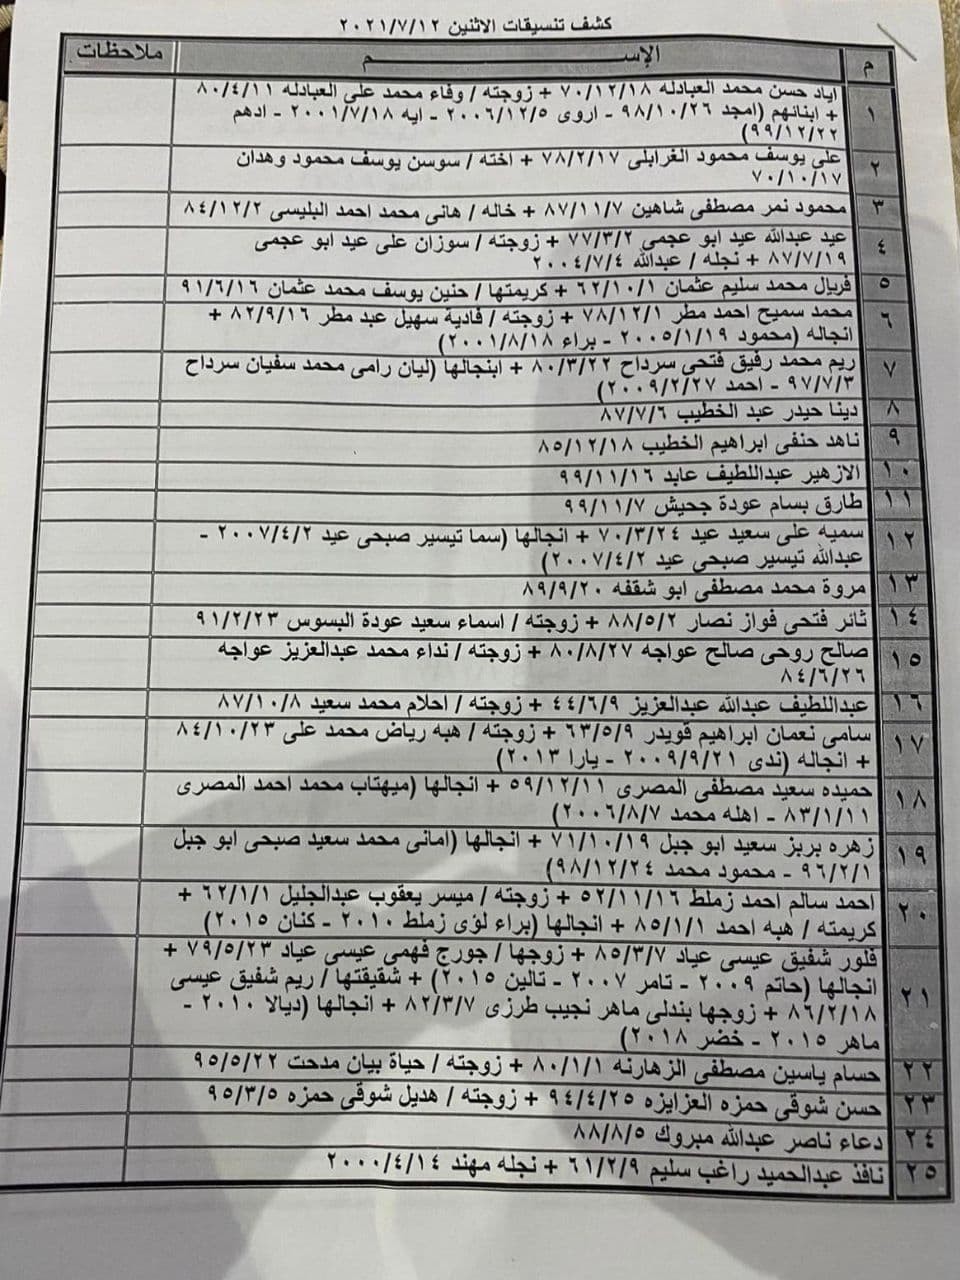 كشف تنسيقات الاثنين ٢٠٢١/٧/١٢
م الإســــم ملاحظات
١ اياد حسن محمد العبادله ٧٠/١٢/١٨ + زوجته / وفاء محمد على العبادله ٨٠/٤/١١
+ ابنائهم (امجد ٩٨/١٠/٢٦ - اروى ٢٠٠٦/١٢/٥ - ايه ٢٠٠١/٧/١٨ - ادهم
٩٩/١٢/٢٢)
٢ على يوسف محمود الغرابلى ٧٨/٢/١٧ + اخته / سوسن يوسف محمود وهدان
٧٠/١٠/١٧
٣ محمود نمر مصطفى شاهين ٨٧/١١/٧ + خاله / هانى محمد احمد البليسى ٨٤/١٢/٢
٤ عيد عبدالله عيد ابو عجمى ٧٧/٣/٢ + زوجته / سوزان على عيد ابو عجمى
٨٧/٧/١٩ + نجله / عبدالله ٢٠٠٤/٧/٤
٥ فريال محمد سليم عثمان ٦٢/١٠/١ + كريمتها / حنين يوسف محمد عثمان ٩١/٦/١٦
٦ محمد سميح احمد مطر ٧٨/١٢/١ + زوجته / فادية سهيل عبد مطر ٨٢/٩/١٦ +
انجاله (محمود ٢٠٠٥/١/١٩ - براء ٢٠٠١/٨/١٨)
٧ ريم محمد رفيق فتحى سرداح ٨٠/٣/٢٢ + ابنجالها (ليان رامى محمد سفيان سرداح
٩٧/٧/٣ - احمد ٢٠٠٩/٢/٢٧)
٨ دينا حيدر عبد الخطيب ٨٧/٧/٦
٩ ناهد حنفى ابراهيم الخطيب ٨٥/١٢/١٨
١٠ الازهير عبداللطيف عابد ٩٩/١١/١٦
١١ طارق بسام عودة جحيش ٩٩/١١/٧
١٢ سميه على سعيد عيد ٧٠/٣/٢٤ + انجالها (سما تيسير صبحى عيد ٢٠٠٧/٤/٢ -
عبدالله تيسير صبحى عيد ٢٠٠٧/٤/٢)
١٣ مروة محمد مصطفى ابو شقفه ٨٩/٩/٢٠
١٤ ثائر فتحى فواز نصار ٨٨/٥/٢ + زوجته / اسماء سعيد عودة البسوس ٩١/٢/٢٣
١٥ صالح روحى صالح عواجه ٨٠/٨/٢٧ + زوجته / نداء محمد عبدالعزيز عواجه
٨٤/٦/٢٦
١٦ عبداللطيف عبدالله عبدالعزيز ٤٤/٦/٩ + زوجته / احلام محمد سعيد ٨٧/١٠/٨
١٧ سامى نعمان ابراهيم قويدر ٦٣/٥/٩ + زوجته / هبه رياض محمد على ٨٤/١٠/٢٣
+ انجاله (ندى ٢٠٠٩/٩/٢١ - يارا ٢٠١٣)
١٨ حميده سعيد مصطفى المصرى ٥٩/١٢/١١ + انجالها (ميهتاب محمد احمد المصرى
٨٣/١/١١ - اهله محمد ٢٠٠٦/٨/٧)
١٩ زهره بربز سعيد ابو جبل ٧١/١٠/١٩ + انجالها (امانى محمد سعيد صبحى ابو جبل
٩٦/٢/١ - محمود محمد ٩٨/١٢/٢٤)
٢٠ احمد سالم احمد زملط ٥٢/١١/١٦ + زوجته / ميسر يعقوب عبدالجليل ٦٢/١/١ +
كريمته / هبه احمد ٨٥/١/١ + انجالها (براء لؤى زملط ٢٠١٠ - كنان ٢٠١٥)
٢١ فلور شفيق عيسى عياد ٨٥/٣/٧ + زوجها / جورج فهمى عيسى عياد ٧٩/٥/٢٣ +
انجالها (حاتم ٢٠٠٩ - تامر ٢٠٠٧ - تالين ٢٠١٥) + شقيقتها / ريم شفيق عيسى
٨٦/٢/١٨ + زوجها بندلى ماهر نجيب طرزى ٨٢/٣/٧ + انجالها (ديالا ٢٠١٠ -
ماهر ٢٠١٥ - خضر ٢٠١٨)
٢٢ حسام ياسين مصطفى الزهارنه ٨٠/١/١ + زوجته / حياة بيان مدحت ٩٥/٥/٢٢
٢٣ حسن شوقى حمزه العزايزه ٩٤/٤/٢٥ + زوجته / هديل شوقى حمزه ٩٥/٣/٥
٢٤ دعاء ناصر عبدالله مبروك ٨٨/٨/٥
٢٥ نافذ عبدالحميد راغب سليم ٦١/٢/٩ + نجله مهند ٢٠٠٠/٤/١٤